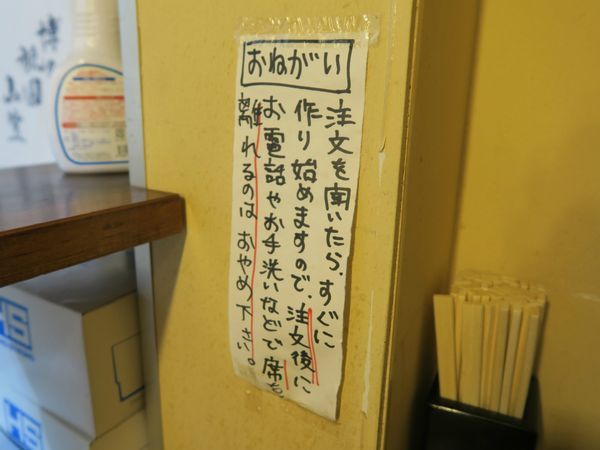 おねがい
注文を聞いたら、すぐに
作り始めますので、注文後に
お電話やお手洗いなどで席を
離れるのはおやめ下さい。
HS
HS